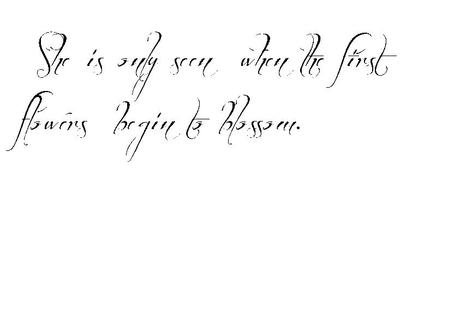 She is only seen when the first
flowers begin to blossom.